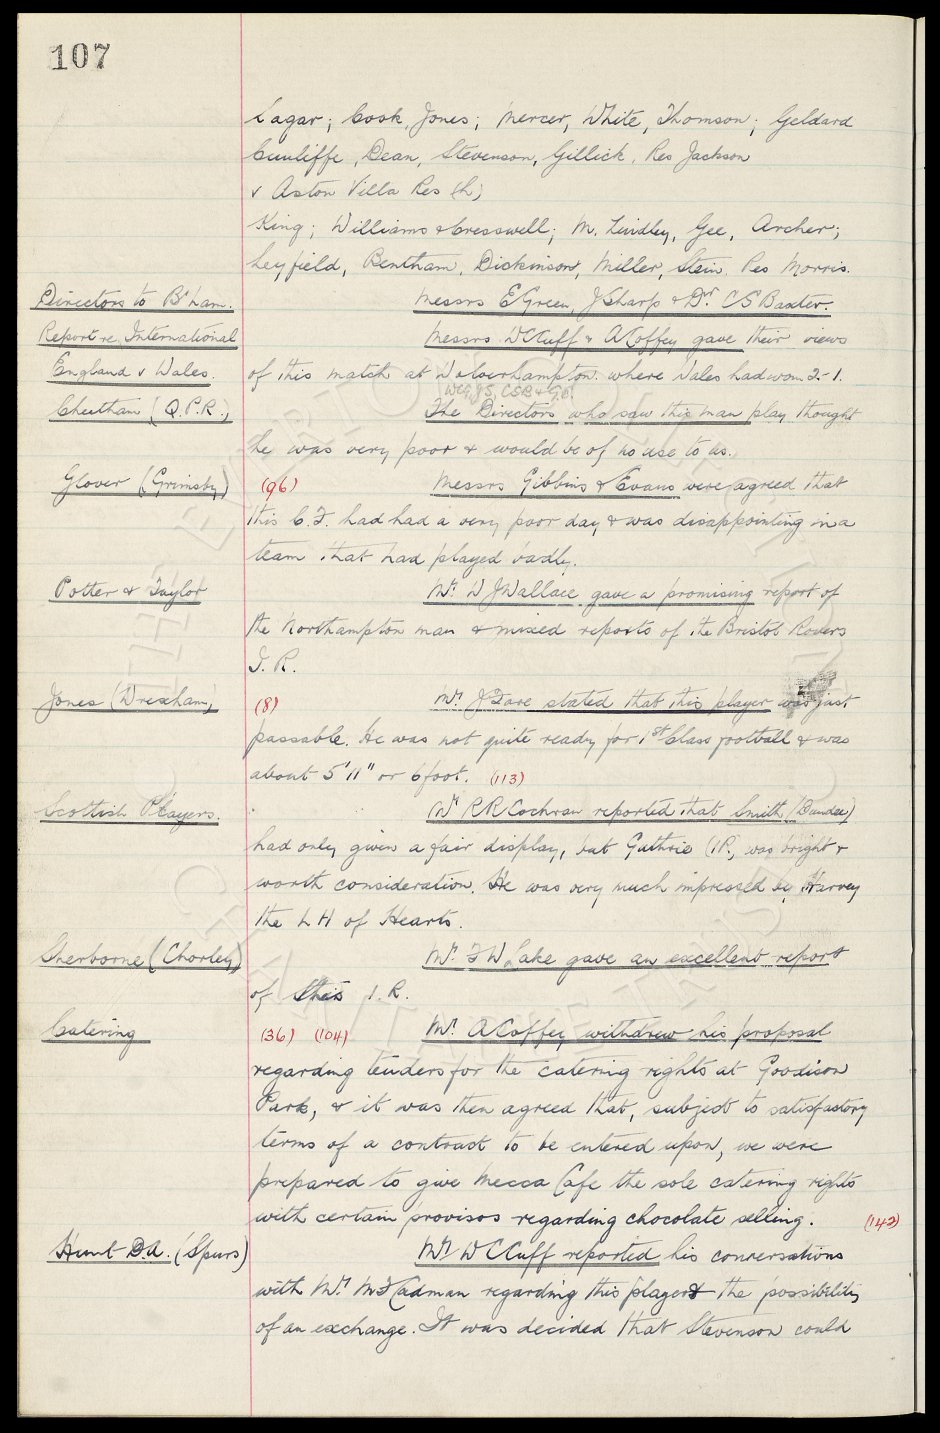 107
Sagar; Cook, Jones; Mercer, White, Thomson; Geldard
Cunliffe, Dean, Stevenson, Gillick, Res Jackson
v Aston Villa Res (h)
King; Williams & Cresswell; M. Lindley, Gee, Archer;
Leyfield, Bentham, Dickinson, Miller, Stein, Res Morris.
Directors to B'ham. Messrs E Green, J Sharp & Dr CS Baxter.
Report re International Messrs WC Cuff & A Coffey gave their views
England v Wales. of this match at Wolverhampton where Wales had won 2-1.
WCG, JS, CSB &
Cheetham (Q.P.R.) The Directors who saw this man play thought
he was very poor & would be of no use to us.
Glover (Grimsby) (96) Messrs Gibbins & Evans were agreed that
this C.F. had had a very poor day & was disappointing in a
team that had played badly.
Potter & Taylor Mr W J Wallace gave a promising report of
the Northampton man & mixed reports of the Bristol Rovers
I.R.
Jones (Wrexham) (8) Mr J Fare stated that this player was just
passable. He was not quite ready for 1st Class football & was
about 5'11" or 6 foot. (113)
Scottish Players. Mr RR Cochran reported that Smith (Dundee)
had only given a fair display, but Guthrie (IR) was bright &
worth consideration. He was very much impressed by Harvey
the L H of Hearts.
Sherborne (Chorley) Mr F W Lake gave an excellent report
of this I.R.
Catering (36) (104) Mr A Coffey withdrew his proposal
regarding tenders for the catering rights at Goodison
Park, & it was then agreed that, subject to satisfactory
terms of a contract to be entered upon, we were
prepared to give Mecca Cafe the sole catering rights
with certain provisos regarding chocolate selling. (142)
Hunt D.A. (Spurs) Mr W C Cuff reported his conversations
with Mr McCadman regarding this player & the possibility
of an exchange. It was decided that Stevenson could